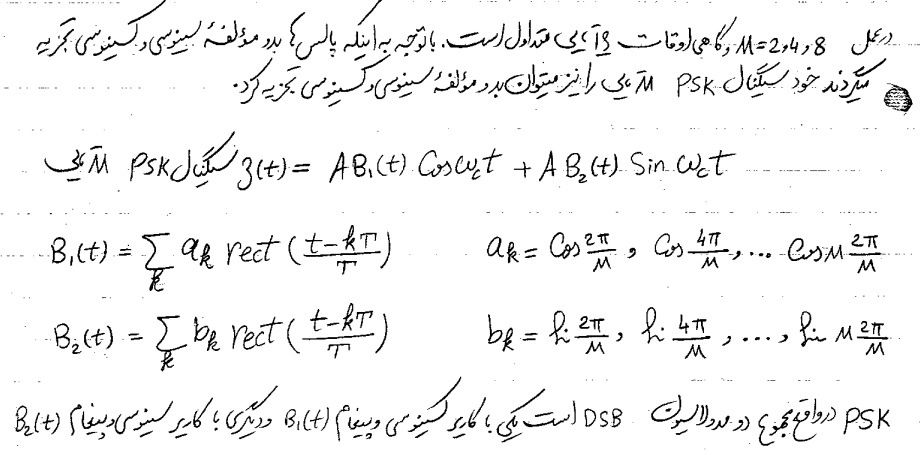 در عمل M=2,4,8 و گاهی اوقات 16 تایی متداول است. با توجه به اینکه پالس‌ها بدو مؤلفهٔ سینوسی و کسینوسی تجزیه
میگردند خود سیگنال PSK M تایی را نیز میتوان بدو مؤلفهٔ سینوسی و کسینوسی تجزیه کرد.
سیگنال PSK M تایی z(t) = AB₁(t) Cos ω_c t + AB₂(t) Sin ω_c t
B₁(t) = Σ_k a_k rect((t-kT)/T) a_k = Cos 2π/M , Cos 4π/M , ... Cos M 2π/M
B₂(t) = Σ_k b_k rect((t-kT)/T) b_k = Sin 2π/M , Sin 4π/M , ... , Sin M 2π/M
PSK در واقع مجموع دو مدولاسیون DSB است یکی با کاریر کسینوسی و پیغام B₁(t) و دیگری با کاریر سینوسی و پیغام B₂(t)